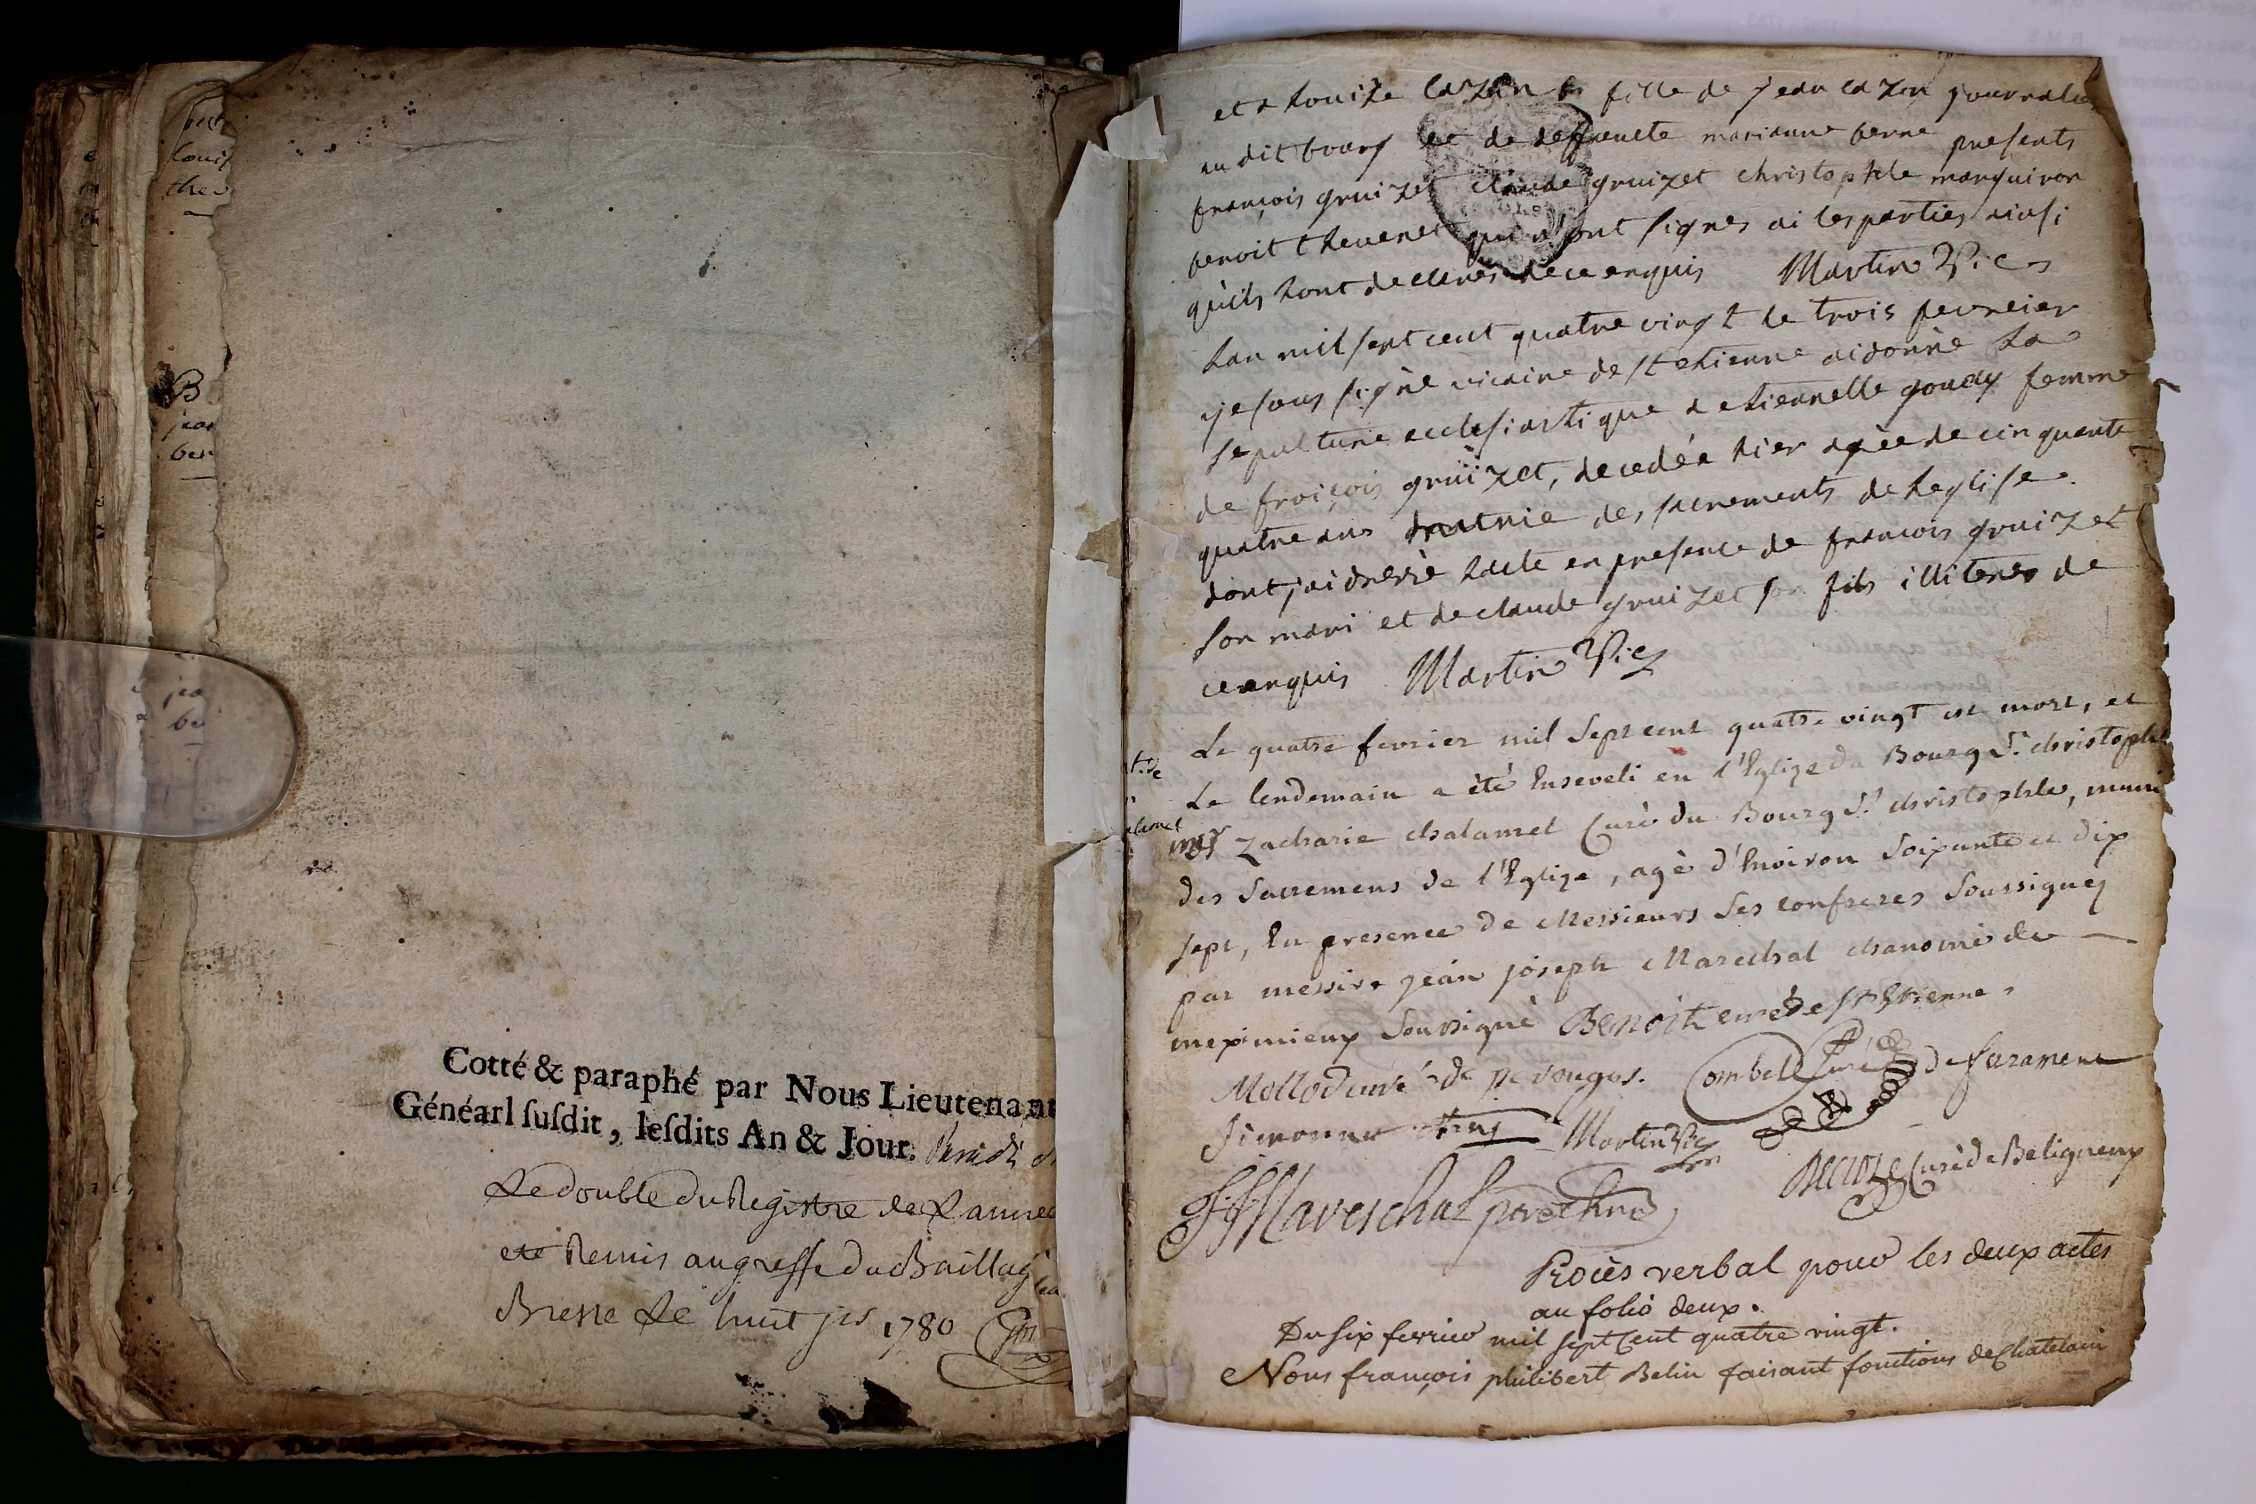 Cotté & paraphé par Nous Lieutenant
Généarl ſuſdit, leſdits An & Jour.
Le double du Registre de L'annee
ete Remis au greffe du Baillag
Bresse Le huit 1780
et a Louise cazon fille de jean cazon journalie
au dit bourg et de deffuncte marianne berne presents
françois gruizet claude gruizet christophle marguiron
benoit thevenet qui n'ont signes ni les parties ainsi
qu'ils hont declarés de ce enquis Martin Vic
Lan mil sept cent quatre vingt le trois fevreier
je sous signè vicaire de st etienne ai donnè la
sepulture ecclesiastique a etiennette goudy femme
de froiçois gruizet, decedéé hier agèe de cinquante
quatre ans des sacrements de leglise
dont j'ai dressè lacte en presence de francois gruizet
son mari et de claude gruizet son fils illiteres de
ce enquis Martin Vic
Le quatre fevrier mil sept cent quatre vingt est mort, et
Le lendemain a èté Enseveli en l'Eglize du Bourg St. christophle
mre Zacharie chalamel Curè du Bourg St. christophle, muni
des Sacremens de l'Eglize, agè d'Environ soixante et dix
sept, En presence de Messieurs ses confreres soussignez
par messire jean joseph Marechal chanoine de
meximieux soussignè Benoit curè de st Etienne
curé de perouges. Curé de faramant
Martin Vic
Curè de Beligneux
JJ Mareschal pretre
Procès verbal pour les deux actes
au folio deux.
Du six fevrier mil sept cent quatre vingt.
Nous françois philibert Belin faisant fonctions de Chatelain